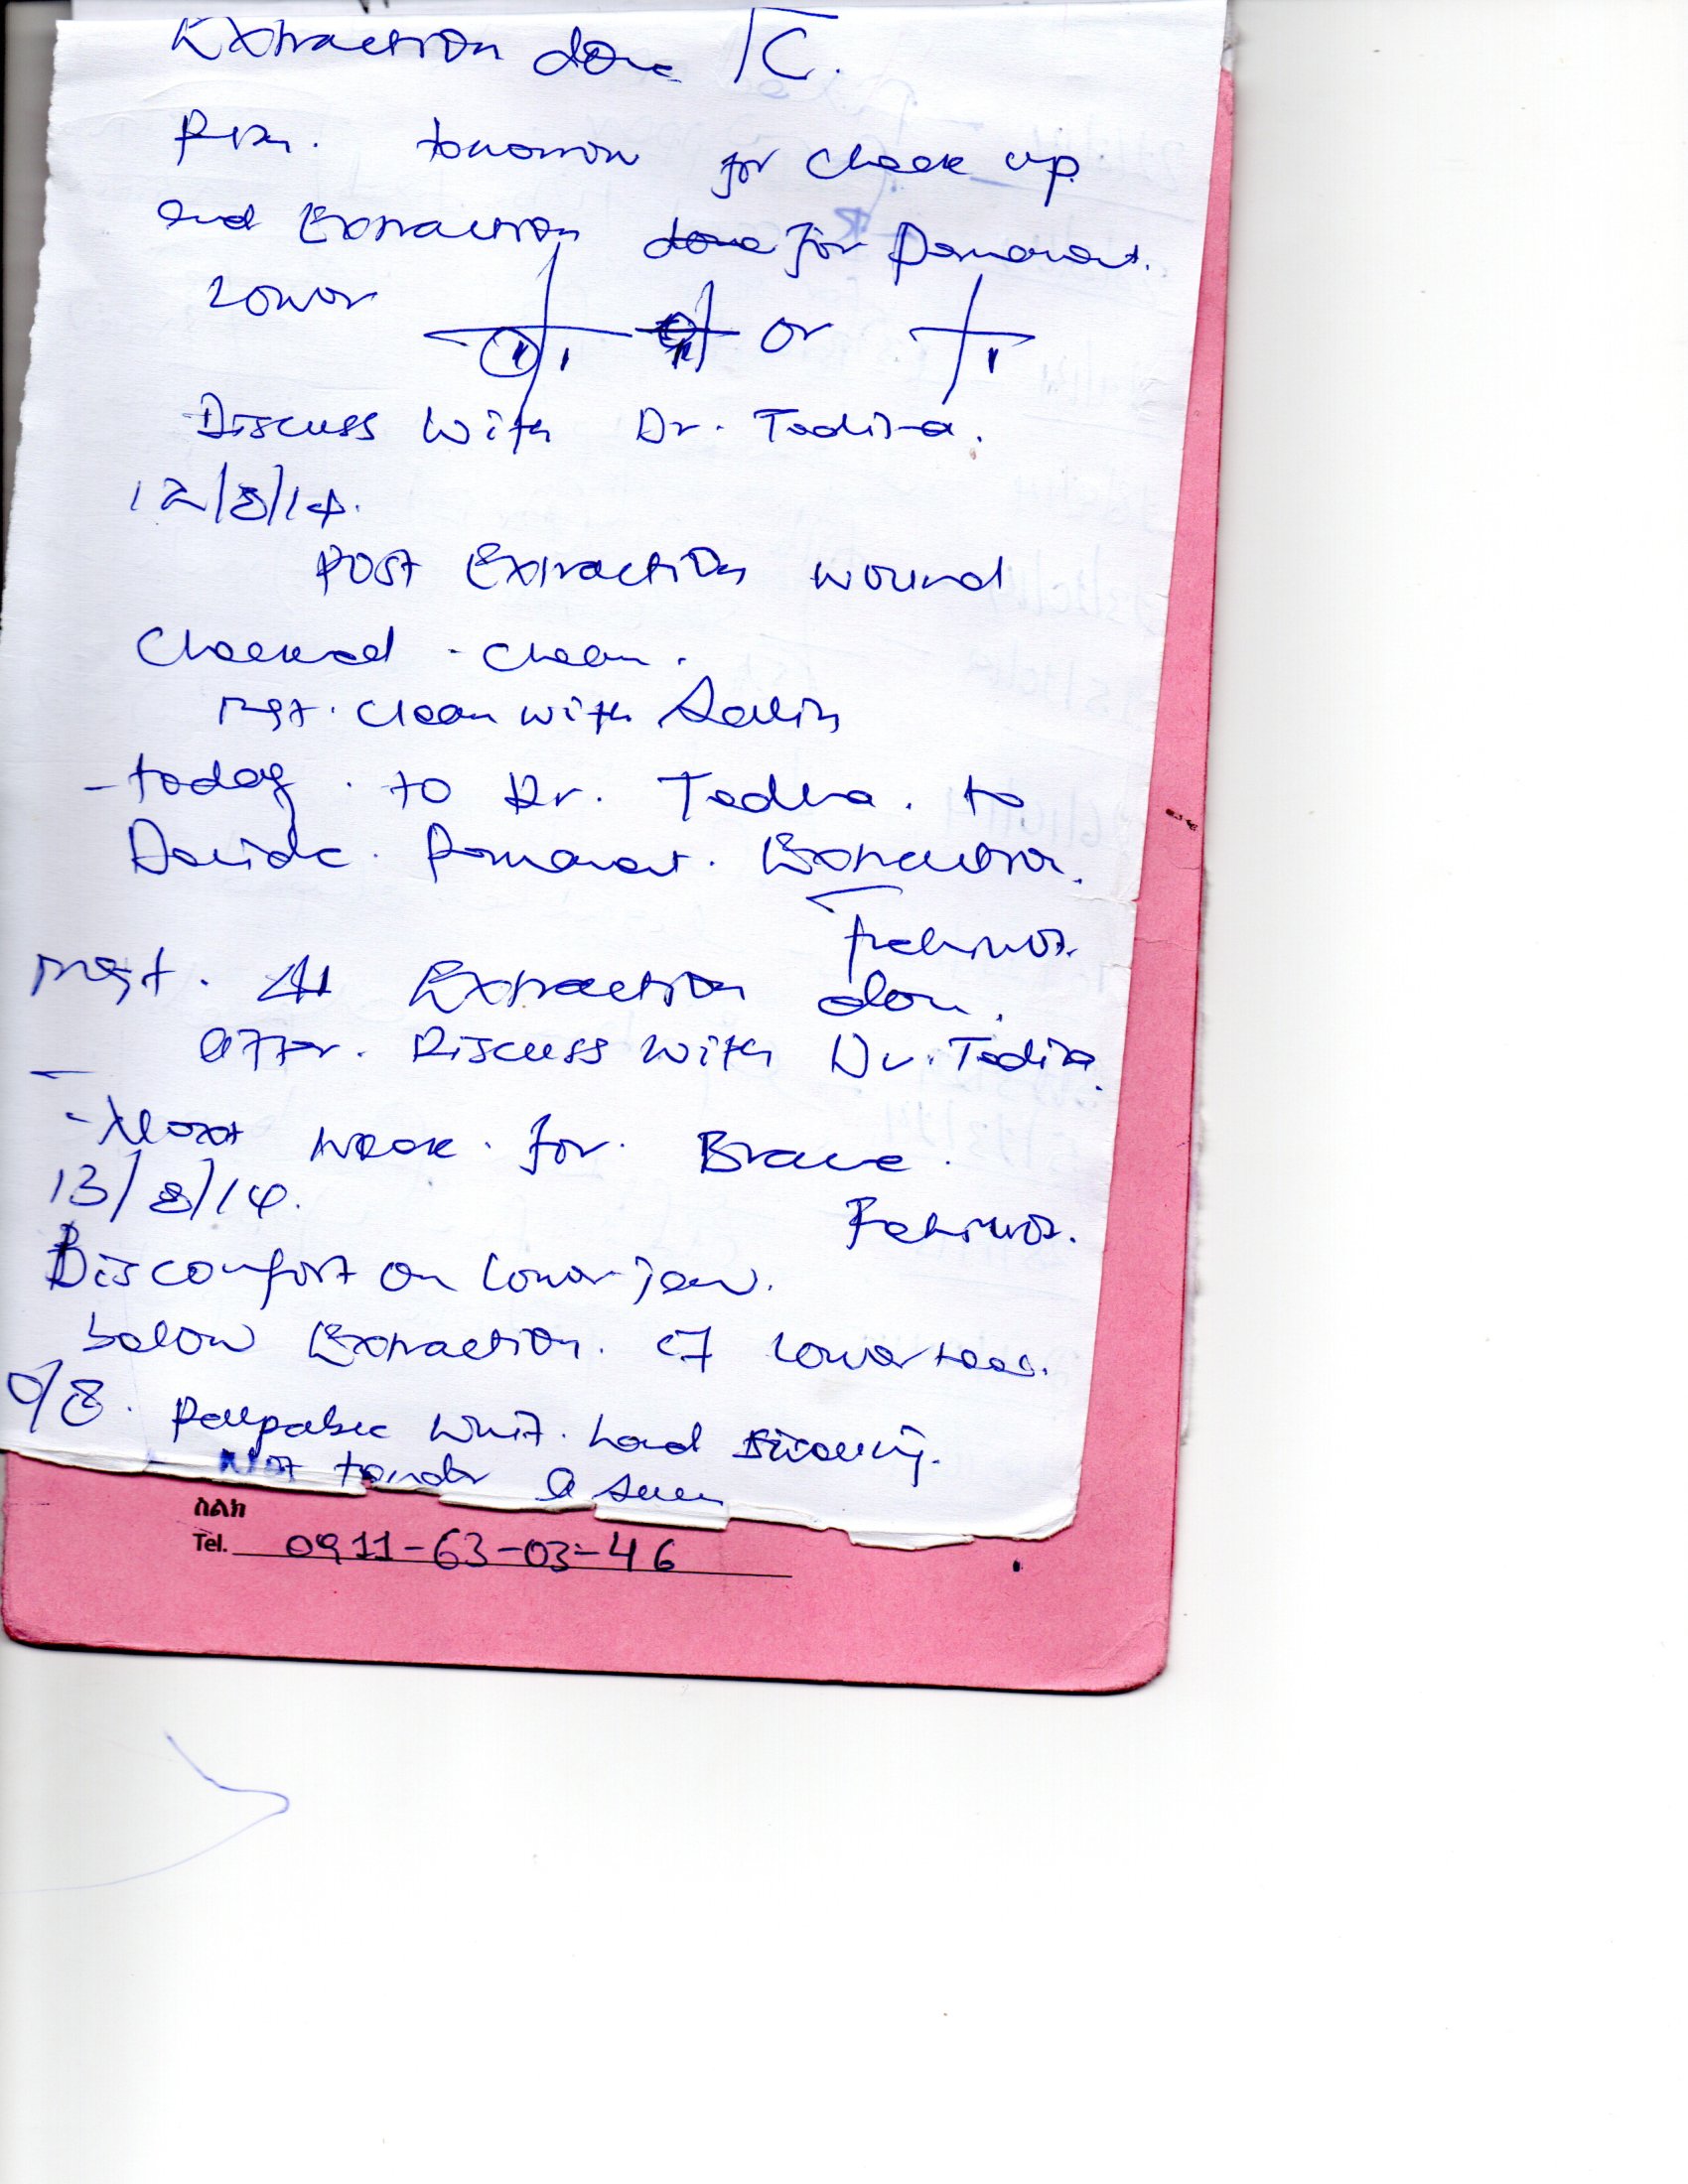 Extraction done C.
Plan. tomorrow for Check up
and Extraction done for Permanent.
Lower 1 1 or 1
Discuss With Dr. Tadisa.
12/8/14.
POST Extraction wound
Checked - clean.
mgt. Clean with Salin
- today . to Dr. Tadisa . to
Decide . Permanent . Extraction.
mgt. Extraction don.
after . Discuss with Dr. Tadisa.
- Next week . for . Brace .
13/8/14.
Discomfort on lower jaw.
below Extraction. of lower
O/E . Palpable . hard
Not tender
ስልክ
Tel. 0911-63-03-46